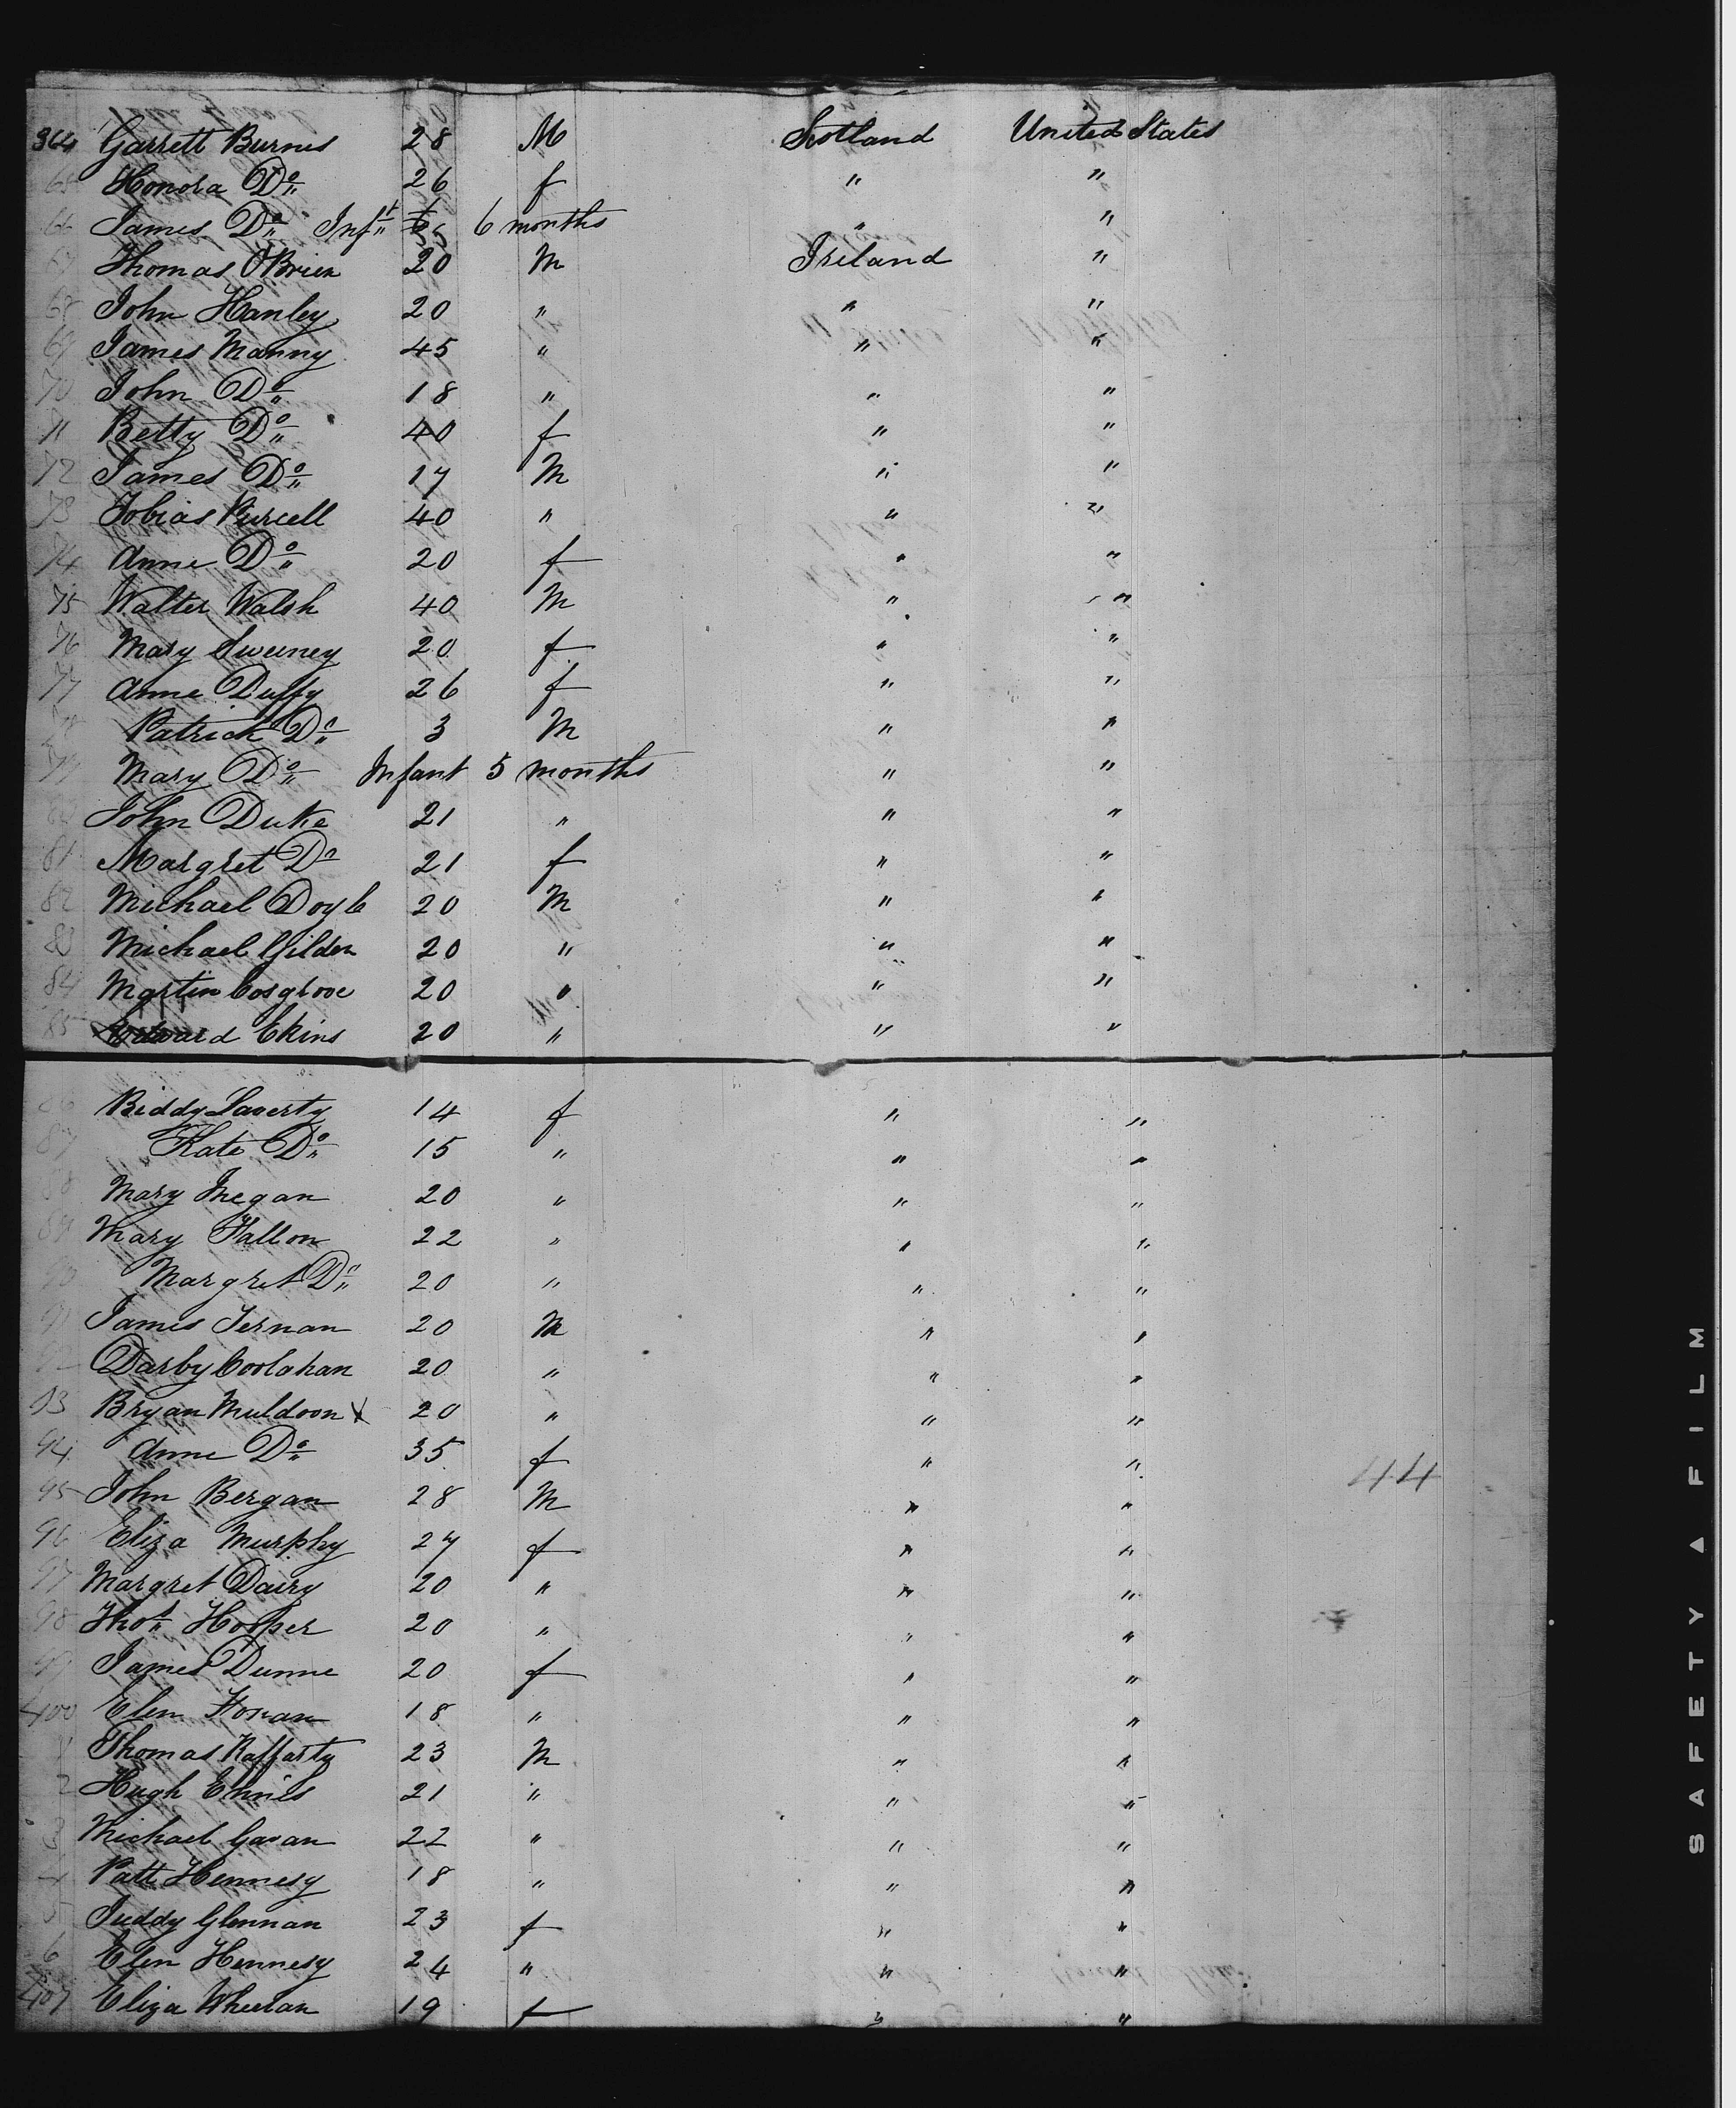 364 Garrett Burnes 28 M Scotland United States
65 Honora Do 26 f " "
66 James Do Inft 6 months " "
67 Thomas OBrien 20 M Ireland "
68 John Hanley 20 " " "
69 James Manny 45 " " "
70 John Do 18 " " "
71 Betty Do 40 f " "
72 James Do 17 M " "
73 Tobias Purcell 40 " " "
74 Anne Do 20 f " "
75 Walter Walsh 40 M " "
76 Mary Sweeney 20 f " "
77 Anne Duffy 26 f " "
78 Patrick Do 3 M " "
79 Mary Do Infant 5 months " "
80 John Duke 21 " " "
81 Margret Do 21 f " "
82 Michael Doyle 20 M " "
83 Michael Gilden 20 " " "
84 Martin Cosgrove 20 " " "
85 Edward Ekins 20 " " "
86 Biddy Laverty 14 f " "
87 Kate Do 15 " " "
88 Mary Megan 20 " " "
89 Mary Fallon 22 " " "
90 Margret Do 20 " " "
91 James Ternan 20 M " "
92 Darby Coolahan 20 " " "
93 Bryan Muldoon x 20 " " "
94 Anne Do 35 f " "
44
95 John Bergan 28 M " "
96 Eliza Murphy 27 f " "
97 Margret Dairy 20 " " "
98 Thos Hooper 20 " " "
99 James Dunne 20 f " "
400 Elen Horan 18 " " "
1 Thomas Raffarty 23 M " "
2 Hugh Ennis 21 " " "
3 Michael Gavan 22 " " "
4 Patt Hennesy 18 " " "
5 Juddy Glennan 23 f " "
6 Elen Hennesy 24 " " "
407 Eliza Wheelan 19 f " "
SAFETY ▲ FILM